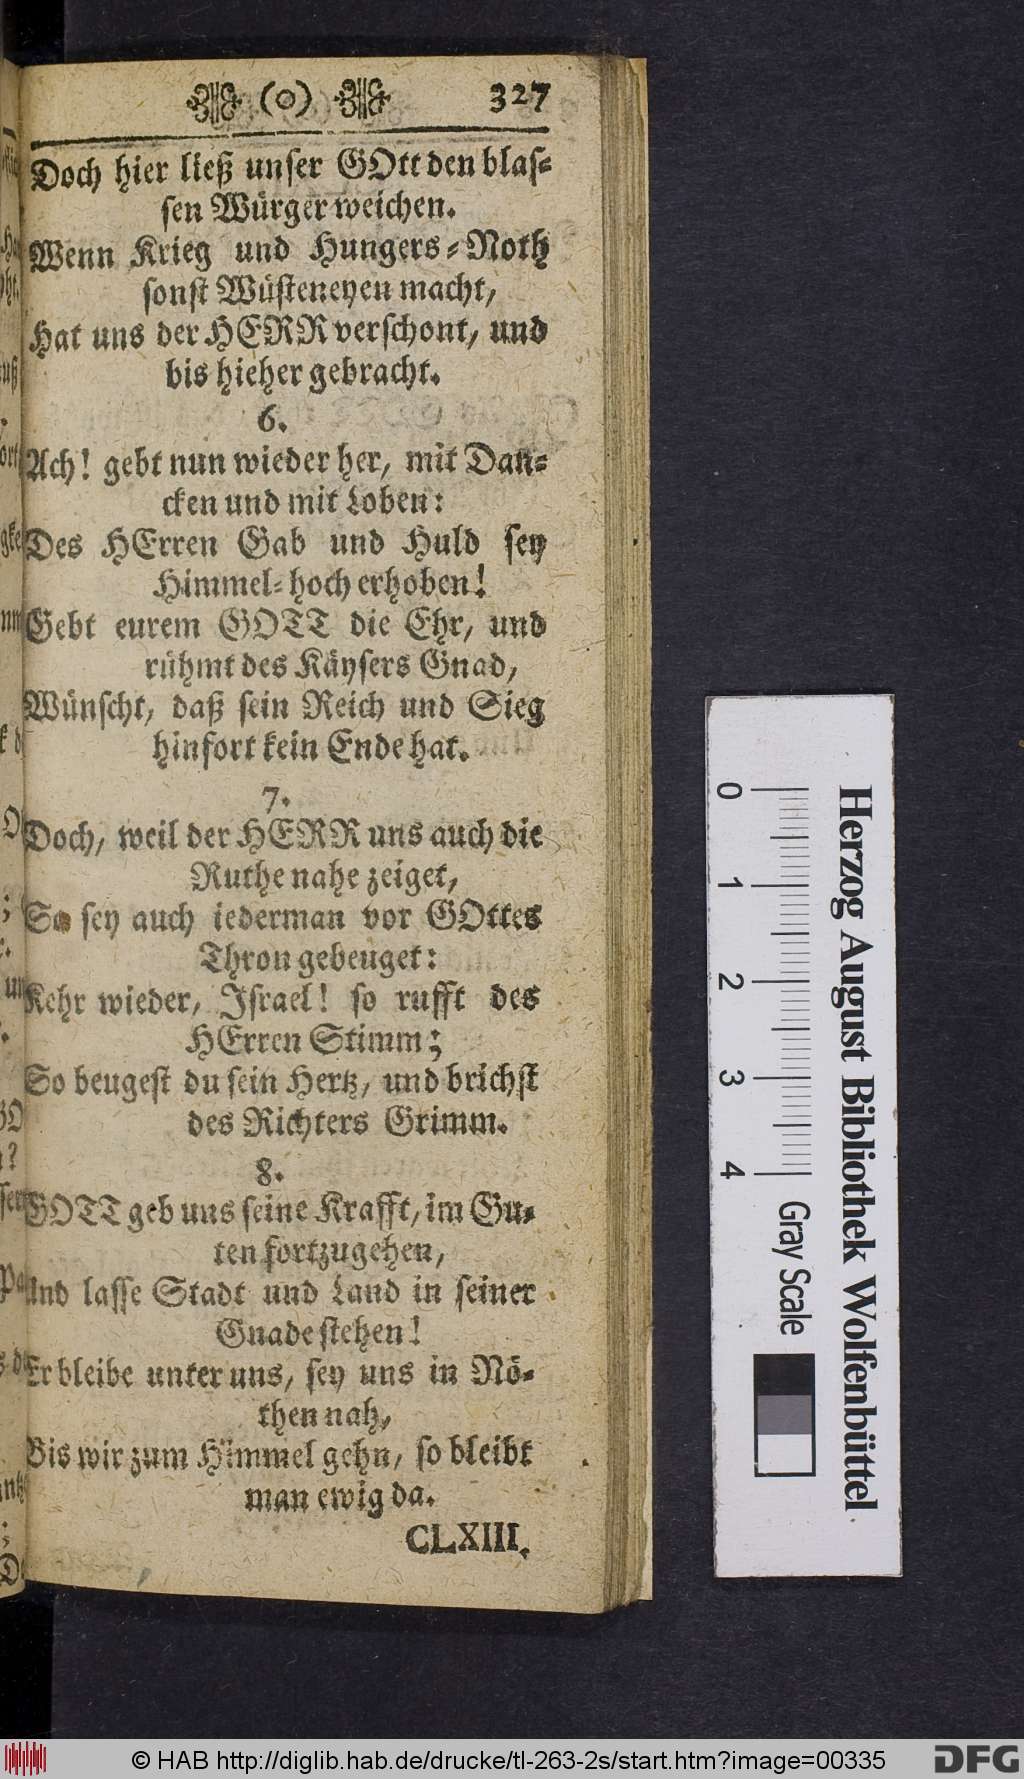 (o) 327
Doch hier ließ unser GOtt den blas-
sen Würger weichen.
Wenn Krieg und Hungers-Noth
sonst Wüsteneyen macht,
Hat uns der HERR verschont, und
bis hieher gebracht.
6.
Ach! gebt nun wieder her, mit Dan-
cken und mit Loben:
Des HErren Gab und Huld sey
Himmel-hoch erhoben!
Gebt eurem GOTT die Ehr, und
rühmt des Käysers Gnad,
Wünscht, daß sein Reich und Sieg
hinfort kein Ende hat.
7.
Doch, weil der HERR uns auch die
Ruthe nahe zeiget,
So sey auch iederman vor GOttes
Thron gebeuget:
Kehr wieder, Israel! so rufft des
HErren Stimm;
So beugest du sein Hertz, und brichst
des Richters Grimm.
8.
GOTT geb uns seine Krafft, im Gu-
ten fortzugehen,
Und lasse Stadt und Land in seiner
Gnade stehen!
Er bleibe unter uns, sey uns in Nö-
then nah,
Bis wir zum Himmel gehn, so bleibt
man ewig da.
CLXIII.
0 1 2 3 4 Gray Scale
Herzog August Bibliothek Wolfenbüttel
© HAB http://diglib.hab.de/drucke/tl-263-2s/start.htm?image=00335
DFG